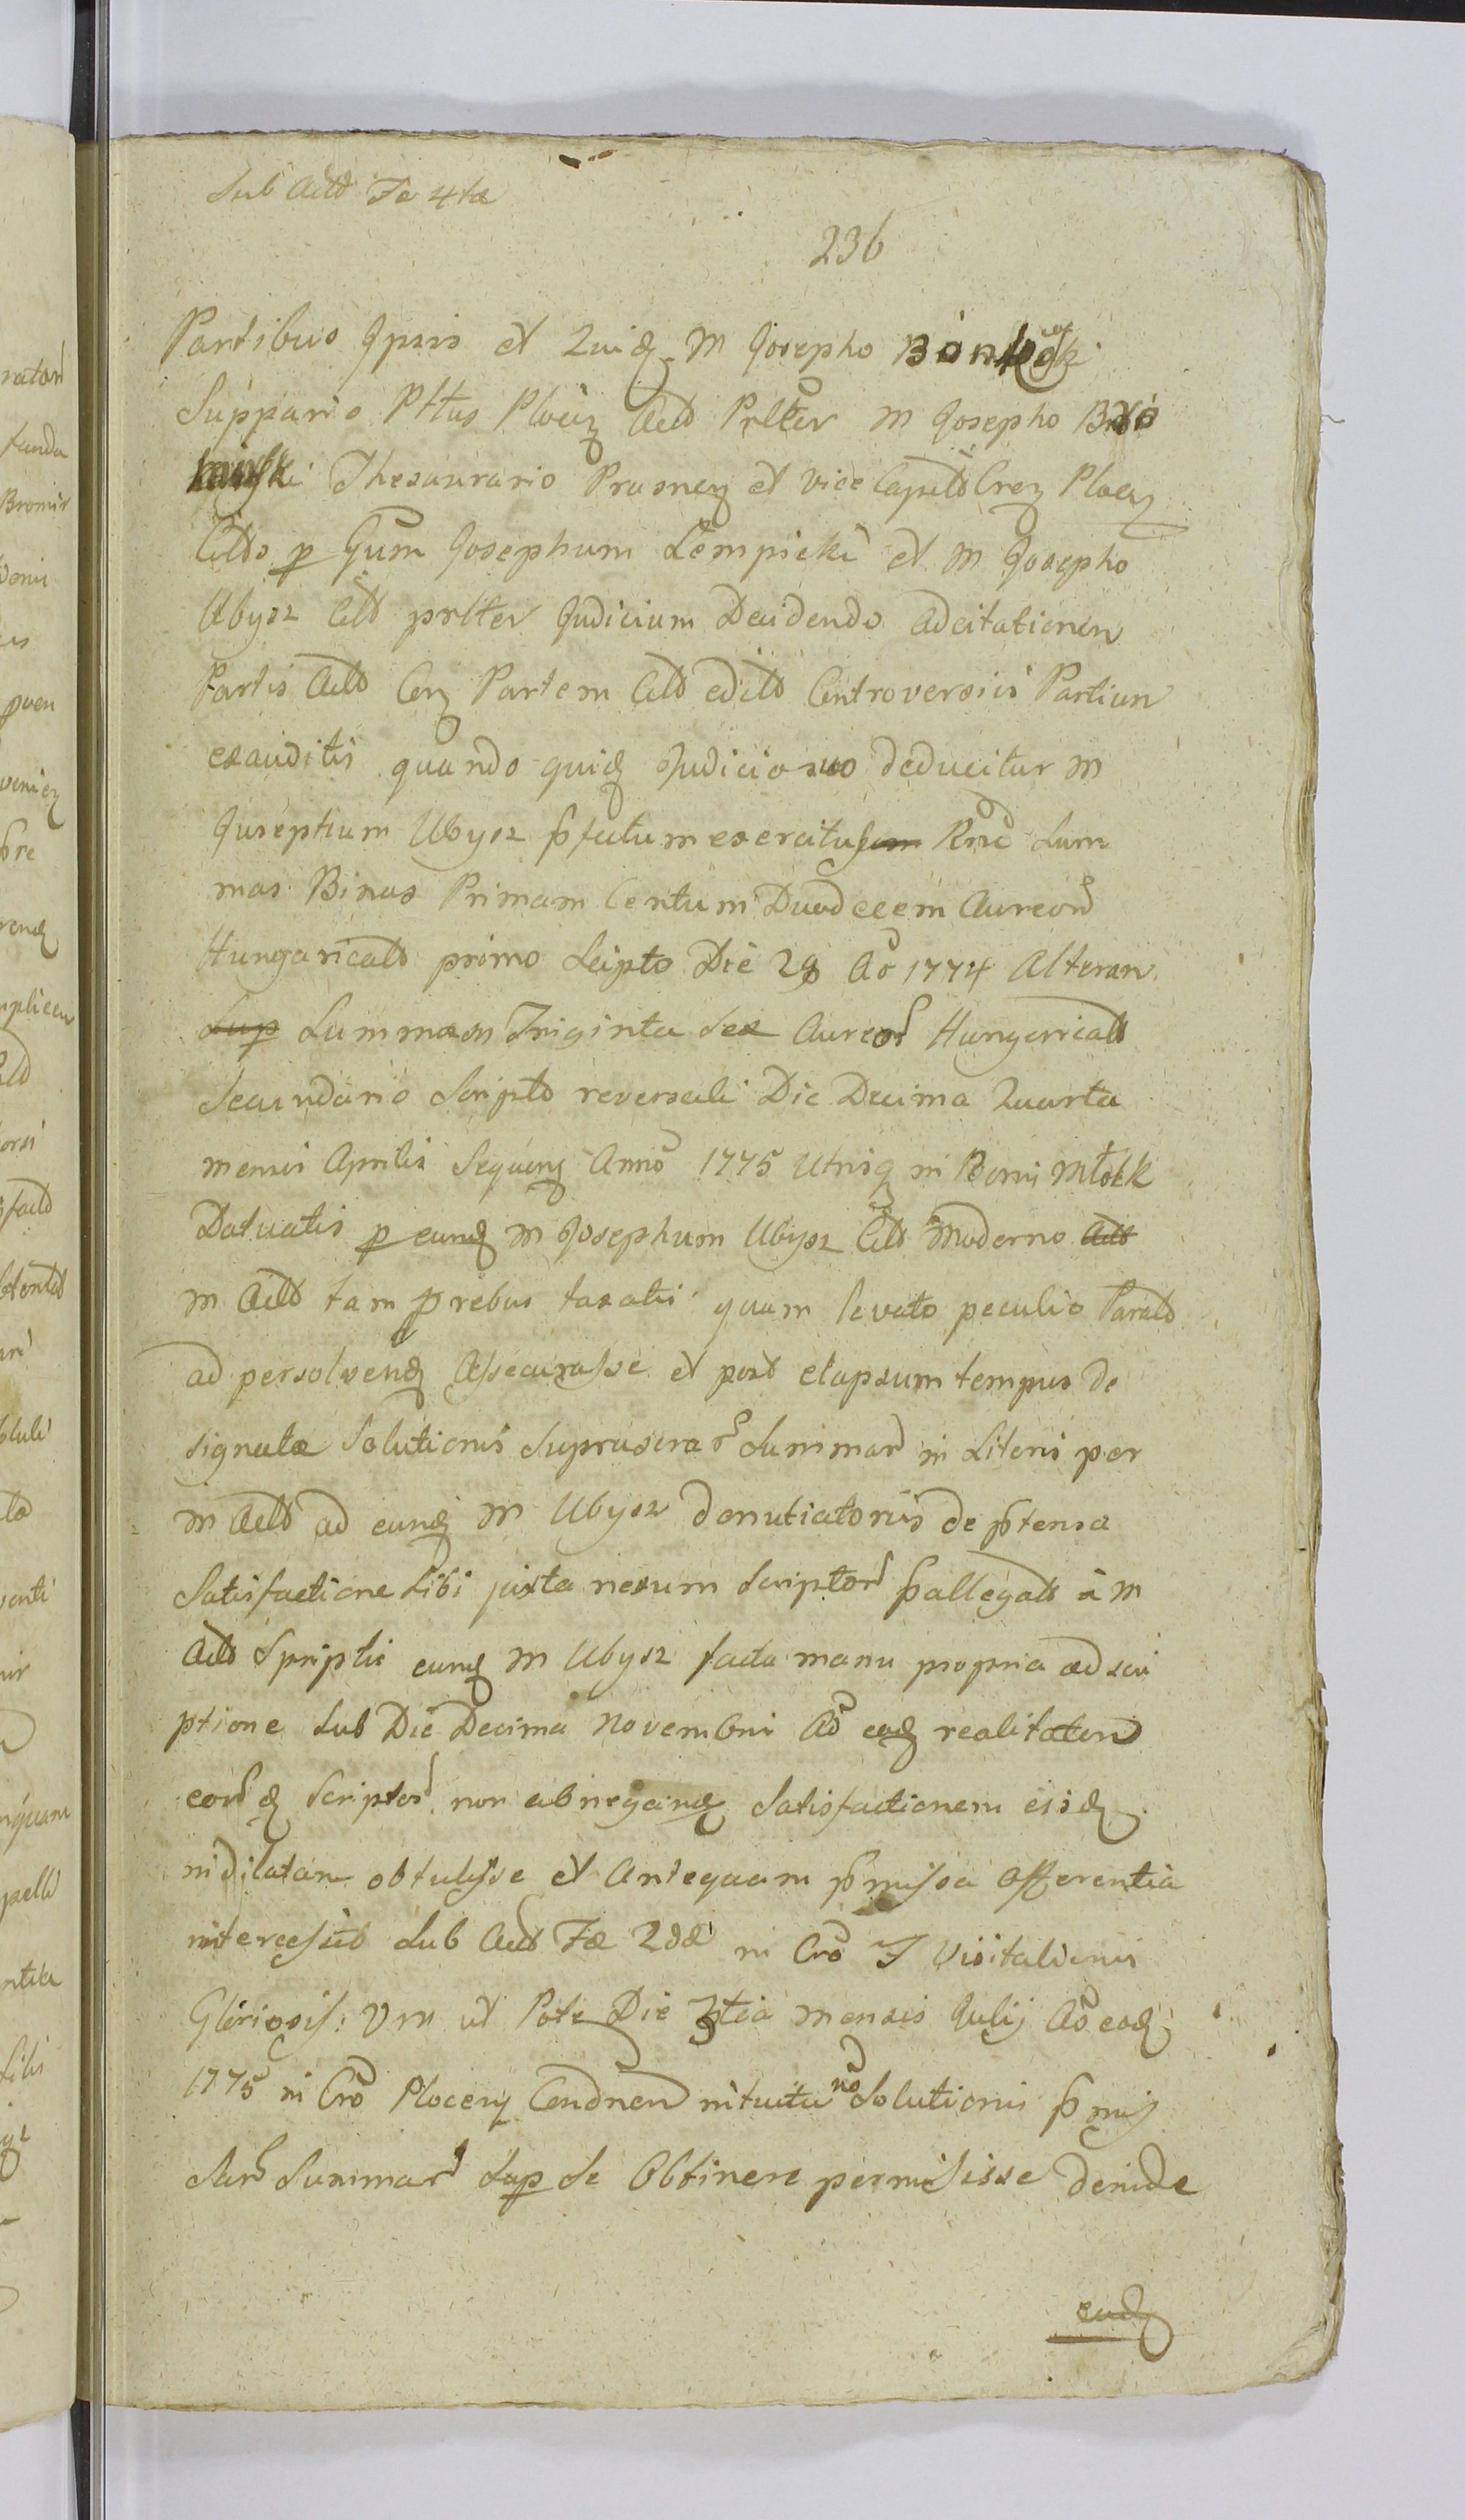 Sub Actt Fa 4ta
236
Partibus Ipsis et Quidz M Josepho
Suppario Pttus Plocz Actt Prlter M Josepho
Thesaurario Prasnez et Vice Captt Crez Plocz
Citts p Gum Josephum Lempicki et M Josepho
Ubysz Citt prlter Judicium Decidendo Adcitationem
Partis Actt Cerz Partem Citt editt Controversiis Partium
exauditis quando quidz Judicio suo deducitur M
Josephum Ubysz pfatum exercitus Rnd Sum
mas Binas Primam Centum Duodecem Aureord
Hungaricalt primo Scripto Die 28 Ao 1774 Alteram
Sup Summam Triginta Sex Aureord Hungaricalt
Secundario Scripto reversali Die Decima Quarta
mensis Aprilis Sequenz Anno 1775 Utrisq in Bonis Młock
Datuatis p eundz M Josephum Ubysz Citt Moderno Actt
M Actt tam p rebus taxatis quam levato peculio Paratt
ad persolvendz Assecurasse et post elapsum tempus de
signatæ Solutionis Suprascrard Summard in Literis per
M Actt ad eundz M Ubysz denutiatoriis de ptensa
Satisfactione Sibi juxta nexum Scriptord pallegatt à M
Actt Scriptis eundz M Ubysz facta manu propria adscri
ptione Sub Die Decima Novembris Ao eodz realitatem
eord dz Scriptord non abnegandz Satisfactionem eisdz
indilatam obtulisse et Antequam pmissa Offerentia
intercessit Sub Actt Fæ 2dæ in Cro F Visitationis
Gloriosis: V M ut Pote Die 3tia Mensis Julij Ao eodz
1775 in Cro Plocenz Condnen intuitu no Solutionis pmis
Sard Summard Sup Se Obtinere permisisse deinde
eundz